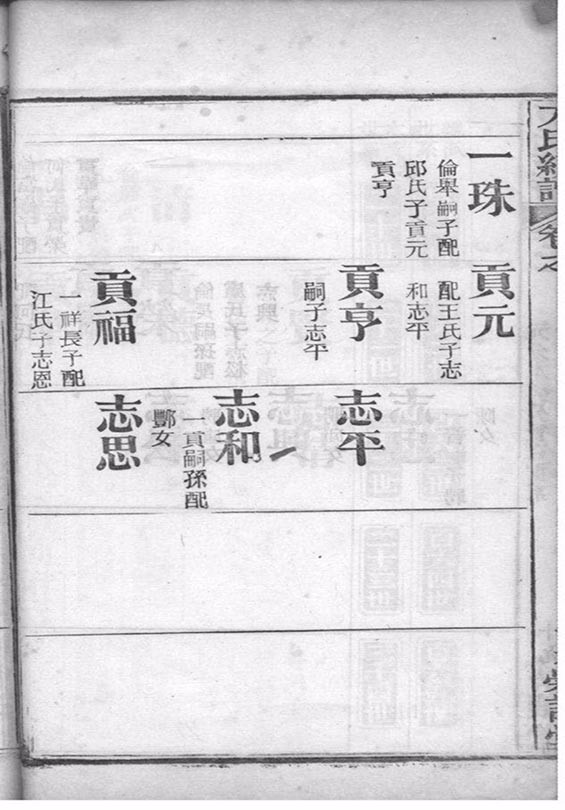 氏總譜
卷之
一珠
倫舉嗣子配
邱氏子貢元
貢亨
貢元
配王氏子志
和志平
貢亨
嗣子志平
貢福
一祥長子配
江氏子志恩
志平
志和
一貢嗣孫配
酈女
志思